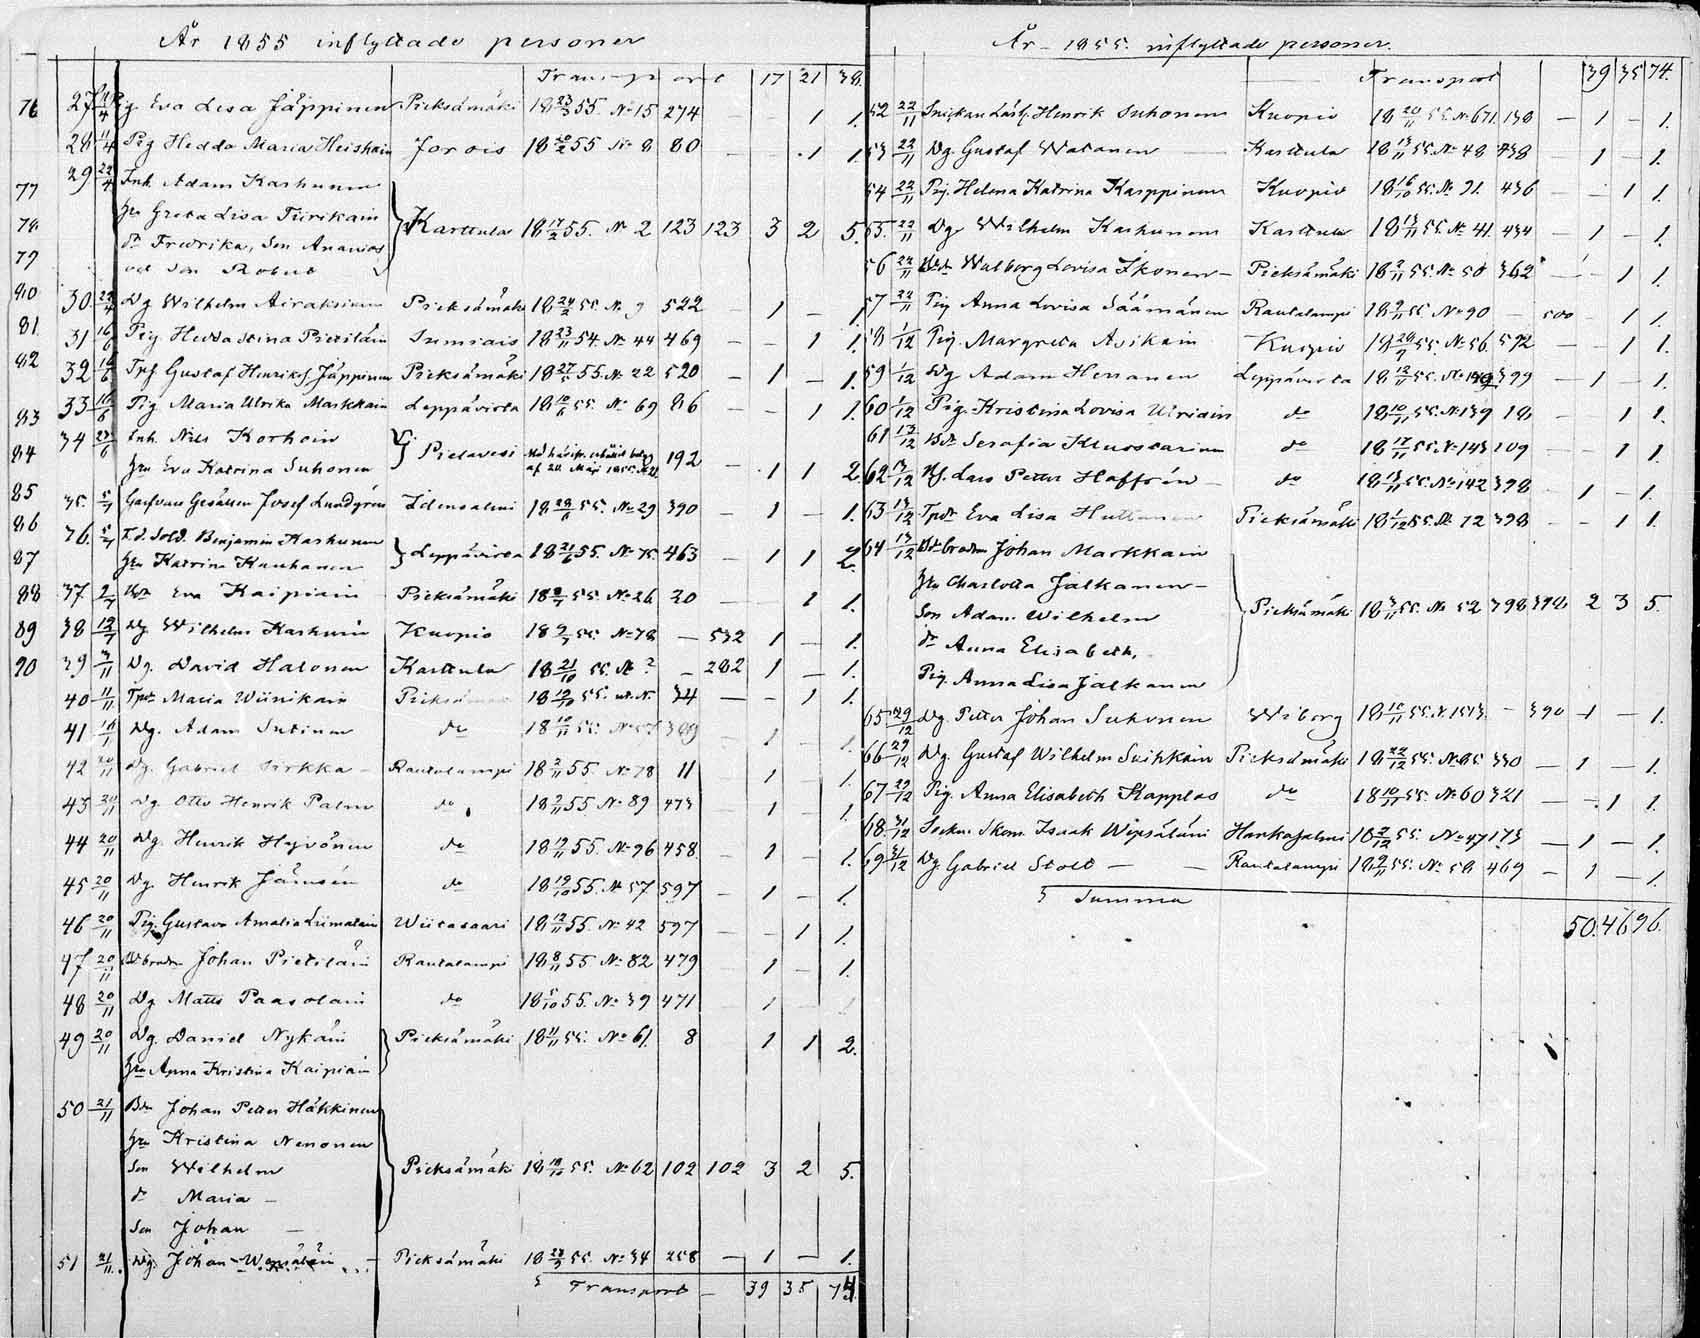 År 1855 inflyttade personer
Transport 17 21 38.
76 27 11/4 Pig Eva Lisa Jäppinen Pieksämäki 18 23/3 55. No 15 274 — — 1 1.
28 11/4 Pig Hedda Maria Heiskain Jorois 18 10/2 55 No 8 80 — — 1 1
77 29 22/4 Inh. Adam Kashunen
78 hu Greta Lisa Tiirikain Karttula 18 17/2 55. No 2 123 123 3 2 5.
dr Fredrika, Son Ananias
79 och Son Robert
80 30 22/4 Dg Wilhelm Airaksinen Pieksämäki 18 24/2 55. No 9 522 — 1 — 1
81. 31 16/6 Pig Hedda Stina Pietiläin Sumiais 18 23/11 54. No 44 469 — — 1 1.
82 32 16/6 Gustaf Henriks. Jäppinen Pieksämäki 18 27/5 55. No 22 520 — 1 — 1.
83 33 16/6 Pig Maria Ulrika Markkain Leppävirta 18 10/6 55. No 69 86 — — 1 1.
84 34 23/6 Inh. Nils Korhoin Pielavesi
af 20 Maj 1855 192 — 1 1 2
hu Eva Katrina Suhonen
85 35. 5/7 Garfvare Gesällen Josef Lundgrén Idensalmi 18 28/6 55. No 29 390 — 1 — 1.
86 76. 5/7 Sold. Benjamin Kashunen
87 hu Katrina Kauhanen Leppävirta 18 21/6 55. No 75. 463 — 1 1 2.
88 37 2/7 Eva Kaipiain Pieksämäki 18 8/7 55. No 26. 20 — — 1 1.
89 38 12/7 Dg Wilhelm Kashunen Kuopio 18 9/7 55. No 78 — 532 1 — 1.
90 39 3/11 Dg. David Halonen Karttula 18 21/10 55. No ? — 282 1 — 1.
40 11/11 Maria Wiinikain Pieksämäki 18 19/10 55. ut. No 34 — — 1 1.
41 Dg. Adam Sutinen do 18 55. No — 1 — 1.
42 20/11 Dg. Gabriel Sirkka — Rautalampi 18 2/11 55. No 78 11 1 1.
43 20/11 Dg. Otto Henrik Palm do 18 9/11 55 No 89 473 1 1.
44 20/11 Dg. Henrik Hyvönen do 18 9/11 55. No 96 458. — 1 — 1.
45 20/11 Dg. Henrik Jämsén do 18 19/10 55. No 57 597 — 1 — 1.
46 20/11 Pig. Gustava Amalia Liimatain Wiitasaari 18 12/11 55. No 42 597 — — 1 1.
47 20/11 Johan Pietiläin Rautalampi 18 8/11 55 No 82 479 — 1 — 1.
48 20/11 Dg Matts Paasolain do 18 5/10 55. No 39 471 — 1 1
49 20/11 Dg. Daniel Nykäin Pieksämäki 18 11/11 55. No 61. 8 1 1 2.
hu Anna Kristina Kaipiain
50 21/11 Bn Johan Petter Häkkinen
hu Kristina Nenonen
Son Wilhelm Pieksämäki 18 18/10 55. No 62 102 102 3 2 5.
dr Maria —
Son Johan —
51 21/11. Dg. Johan Wepsäläin — Pieksämäki 18 23/9 55. No 34 258 — 1 — 1.
Transport — 39 35 74.
År 1855. inflyttade personer.
Transport 39 35 74.
52 22/11 Snickare Lärl. Henrik Suhonen Kuopio 18 20/11 55. No 671. 138 — 1 — 1.
53 22/11 Dg. Gustaf Watanen — Karttula 18 13/11 55. No 48 438 — 1 — 1.
54 22/11 Pig. Helena Katrina Karppinen Kuopio 18 16/10 55. No 91. 436 — — 1 1.
55. 22/11 Dg Wilhelm Kashunen Karttula 18 13/11 55. No 41. 434 — 1 — 1.
56 22/11 Walborg Lovisa Ikonen — Pieksämäki 18 2/11 55. No 50 362 — 1 1.
57 22/11 Pig Anna Lovisa Säämänen Rautalampi 18 9/11 55 No 90 — 500 — 1 1.
58 1/12 Pig. Margreta Asikain Kuopio 18 28/9 55. No 56. 592 — — 1 1.
59 1/12 Dg Adam Heranen Leppävirta 18 12/11 55. No 149 399 — 1 — 1.
60 1/12 Pig. Kristina Lovisa Uriain do 18 10/11 55. No 139 18. — 1 1.
61 13/12 Serafia Kluostarin do 18 17/11 55. No 143 109 — — 1 1.
62 13/12 Lars Petter Haffrén — do 18 13/11 55. No 142 398 — 1 — 1.
63 13/12 Eva Lisa Huttunen Pieksämäki 18 1/12 55. No 72 398 — — 1 1.
64 13/12 Johan Markkain
hu Charlotta Jalkanen —
Son Adam Wilhelm Pieksämäki 18 3/11 55. No 52 398 398 2 3 5.
dr Anna Elisabeth.
Pig. Anna Lisa Jalkanen
65 29/12 Dg. Petter Johan Suhonen Wiborg 18 16/11 55. No 1513. — 390 1 — 1.
66 29/12 Dg. Gustaf Wilhelm Suihkoin Pieksämäki 18 22/12 55. No 85 330 — 1 — 1.
67 29/12 Pig. Anna Elisabeth Kapplas do 18 10/11 55. No 60 321 — — 1 1.
68. 31/12 Sockn. Skom. Isaak Wepsäläin Hankasalmi 18 2/12 55. No 47 173 — 1 — 1.
69 31/12 Dg. Gabriel Stolt — — Rautalampi 18 9/11 55. No 58 469 — 1 — 1.
Summa
50. 46 96.